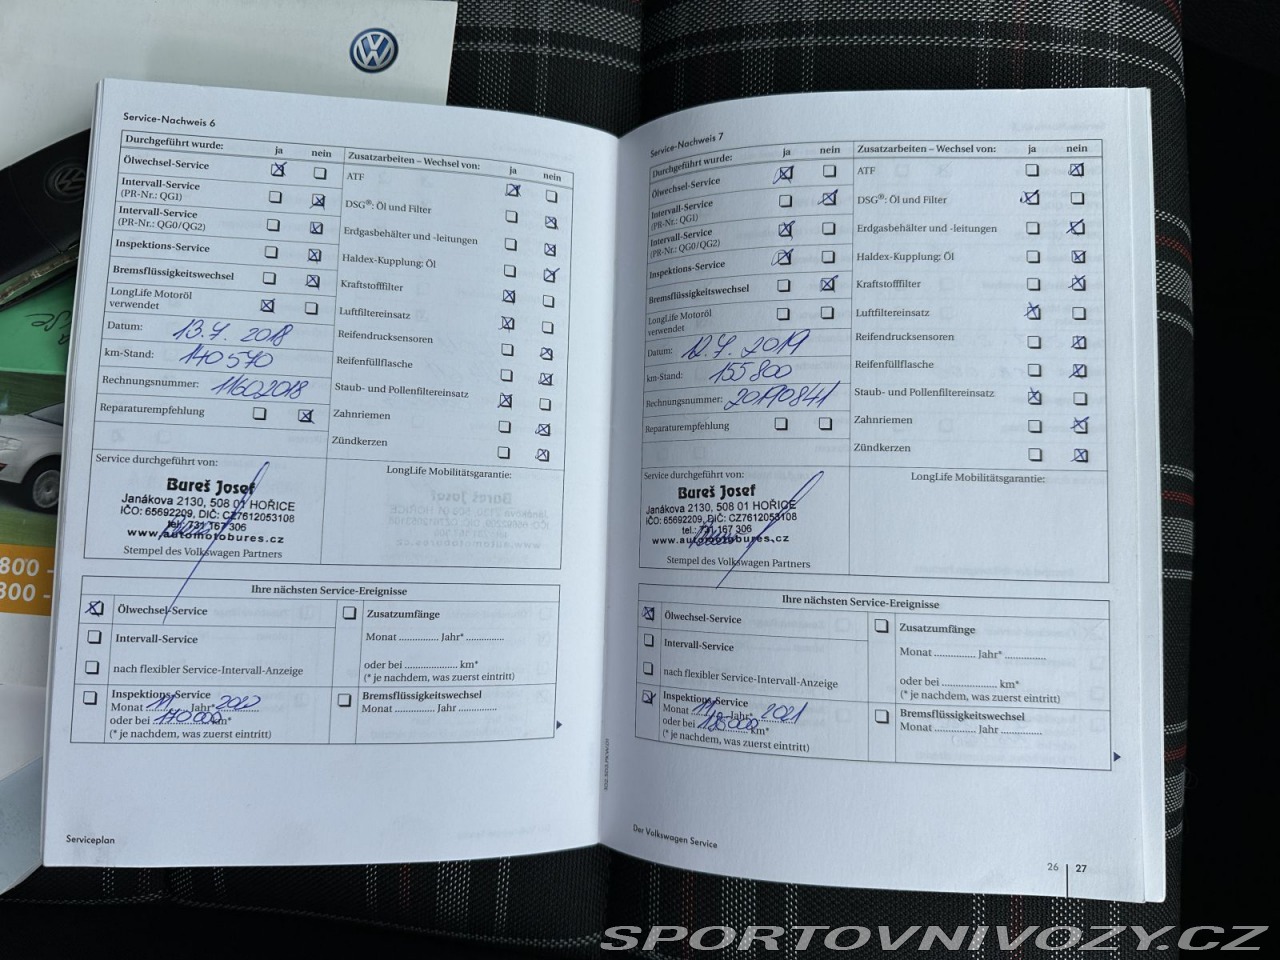 Service-Nachweis 6
Durchgeführt wurde: ja nein
Ölwechsel-Service
Intervall-Service
(PR-Nr.: QG1)
Intervall-Service
(PR-Nr.: QG0/QG2)
Inspektions-Service
Bremsflüssigkeitswechsel
LongLife Motoröl
verwendet
Datum: 13.7. 2018
km-Stand: 140 570
Rechnungsnummer: 11602018
Reparaturempfehlung
Zusatzarbeiten – Wechsel von: ja nein
ATF
DSG®: Öl und Filter
Erdgasbehälter und -leitungen
Haldex-Kupplung: Öl
Kraftstofffilter
Luftfiltereinsatz
Reifendrucksensoren
Reifenfüllflasche
Staub- und Pollenfiltereinsatz
Zahnriemen
Zündkerzen
Service durchgeführt von:
Bureš Josef
Janákova 2130, 508 01 HOŘICE
IČO: 65692209, DIČ: CZ7612053108
tel.: 731 167 306
www.automotobures.cz
Stempel des Volkswagen Partners
LongLife Mobilitätsgarantie:
Ihre nächsten Service-Ereignisse
Ölwechsel-Service
Intervall-Service
nach flexibler Service-Intervall-Anzeige
Inspektions-Service
Monat 11 Jahr* 2020
oder bei 170 000 km*
(* je nachdem, was zuerst eintritt)
Zusatzumfänge
Monat .............. Jahr* ..............
oder bei .................... km*
(* je nachdem, was zuerst eintritt)
Bremsflüssigkeitswechsel
Monat ........... Jahr ..............
Serviceplan
Service-Nachweis 7
Durchgeführt wurde: ja nein
Ölwechsel-Service
Intervall-Service
(PR-Nr.: QG1)
Intervall-Service
(PR-Nr.: QG0/QG2)
Inspektions-Service
Bremsflüssigkeitswechsel
LongLife Motoröl
verwendet
Datum: 12.7. 2019
km-Stand: 155 800
Rechnungsnummer: 20190841
Reparaturempfehlung
Zusatzarbeiten – Wechsel von: ja nein
ATF
DSG®: Öl und Filter
Erdgasbehälter und -leitungen
Haldex-Kupplung: Öl
Kraftstofffilter
Luftfiltereinsatz
Reifendrucksensoren
Reifenfüllflasche
Staub- und Pollenfiltereinsatz
Zahnriemen
Zündkerzen
Service durchgeführt von:
Bureš Josef
Janákova 2130, 508 01 HOŘICE
IČO: 65692209, DIČ: CZ7612053108
tel.: 731 167 306
www.automotobures.cz
Stempel des Volkswagen Partners
LongLife Mobilitätsgarantie:
Ihre nächsten Service-Ereignisse
Ölwechsel-Service
Intervall-Service
nach flexibler Service-Intervall-Anzeige
Inspektions-Service
Monat 11 Jahr* 2021
oder bei 185000 km*
(* je nachdem, was zuerst eintritt)
Zusatzumfänge
Monat .............. Jahr* ..............
oder bei .................... km*
(* je nachdem, was zuerst eintritt)
Bremsflüssigkeitswechsel
Monat .............. Jahr ..............
Der Volkswagen Service
26 27
SPORTOVNIVOZY.CZ